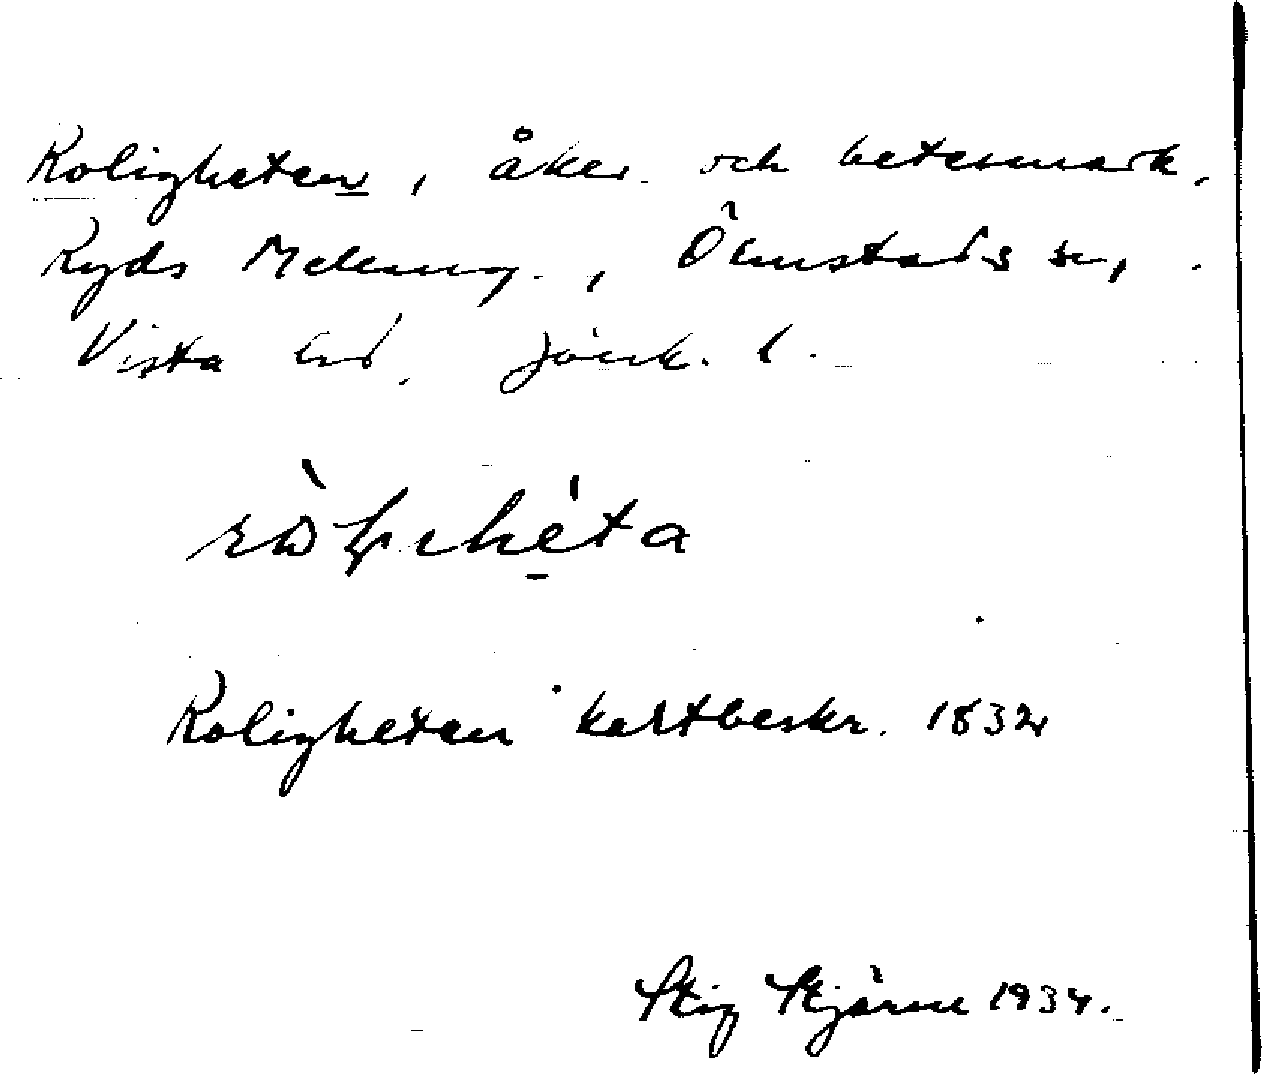 Roligheten, åker och betesmark,
Ryds Mellang., Ölmstads sn,
Vista hd, Jönk. l.
Roligheten kartbeskr. 1832
Stig Stjärne 1934.